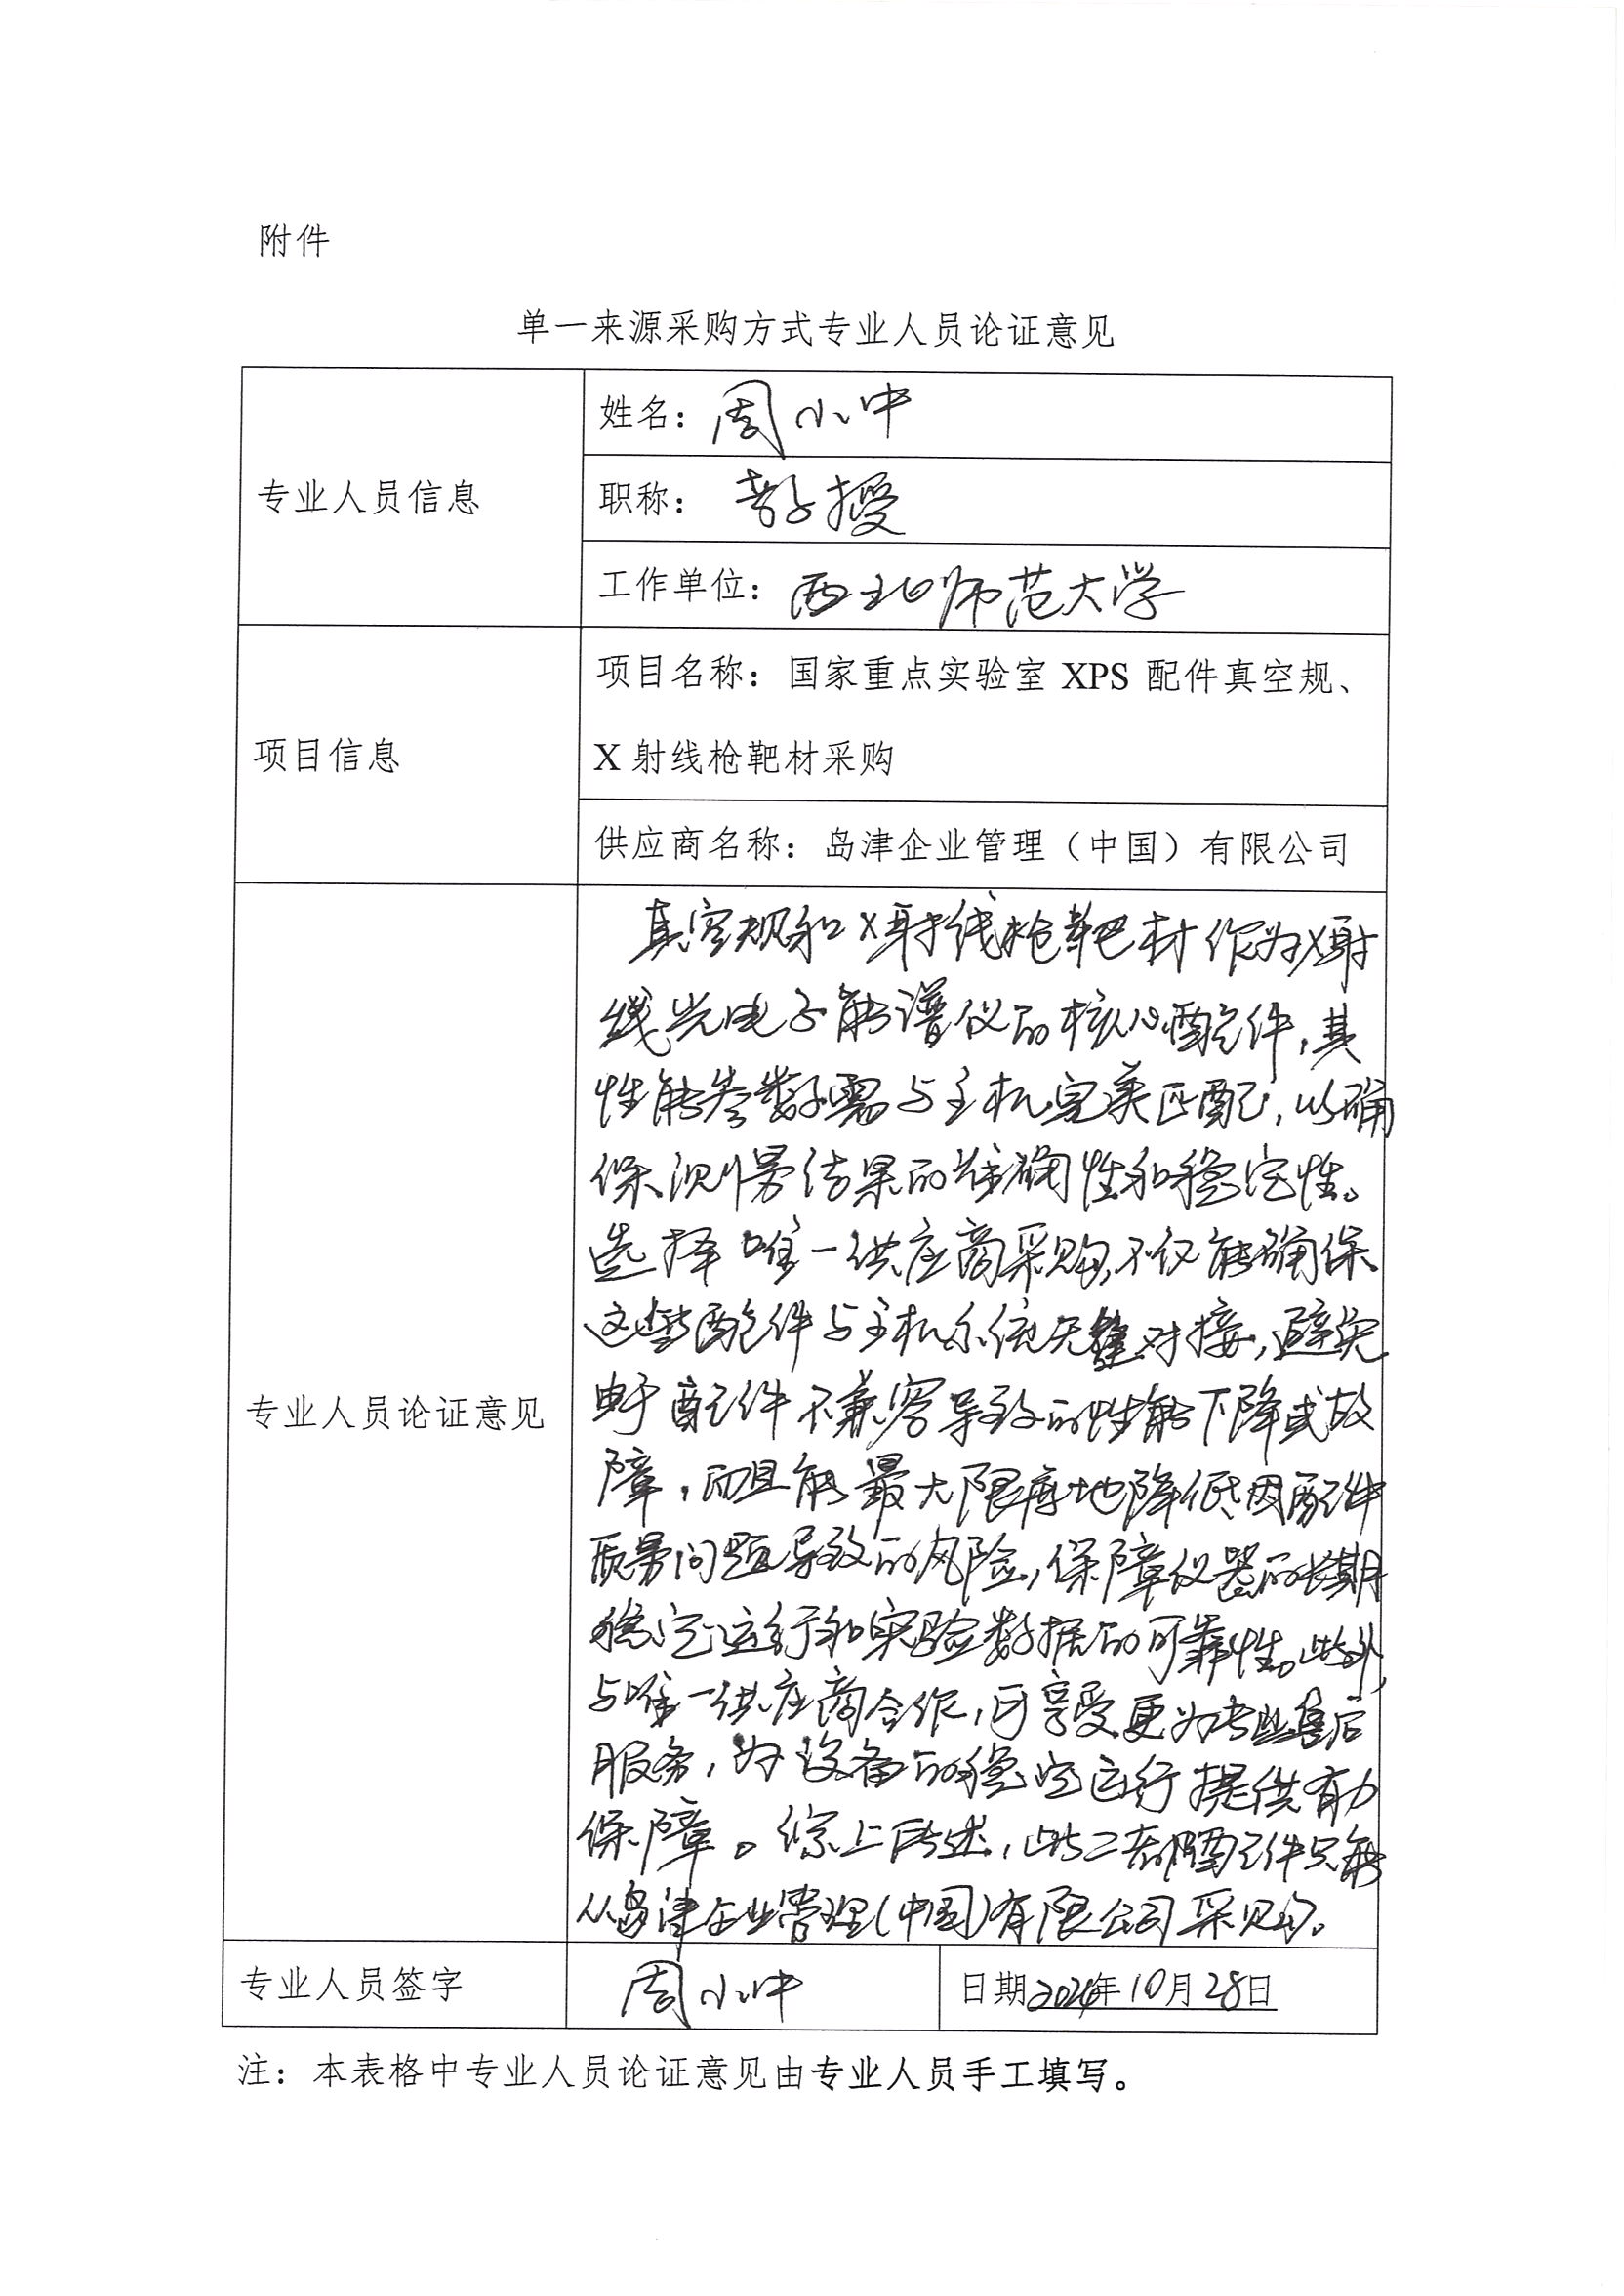 附件
单一来源采购方式专业人员论证意见
专业人员信息
姓名：周小中
职称：教授
工作单位：西北师范大学
项目信息
项目名称：国家重点实验室 XPS 配件真空规、
X 射线枪靶材采购
供应商名称：岛津企业管理（中国）有限公司
专业人员论证意见
真空规和X射线枪靶材作为X射
线光电子能谱仪的核心配件，其
性能参数需与主机完美匹配，以确
保测量结果的准确性和稳定性。
选择唯一供应商采购，不仅能确保
这些配件与主机系统无缝对接，避免
由于配件不兼容导致的性能下降或故
障，而且能最大限度地降低因配件
质量问题导致的风险，保障仪器的长期
稳定运行和实验数据的可靠性。此外，
与唯一供应商合作，可享受更为专业售后
服务，为设备的稳定运行提供有力
保障。综上所述，此二者的配件只能
从岛津企业管理(中国)有限公司采购。
专业人员签字
周小中
日期2024年10月28日
注：本表格中专业人员论证意见由专业人员手工填写。